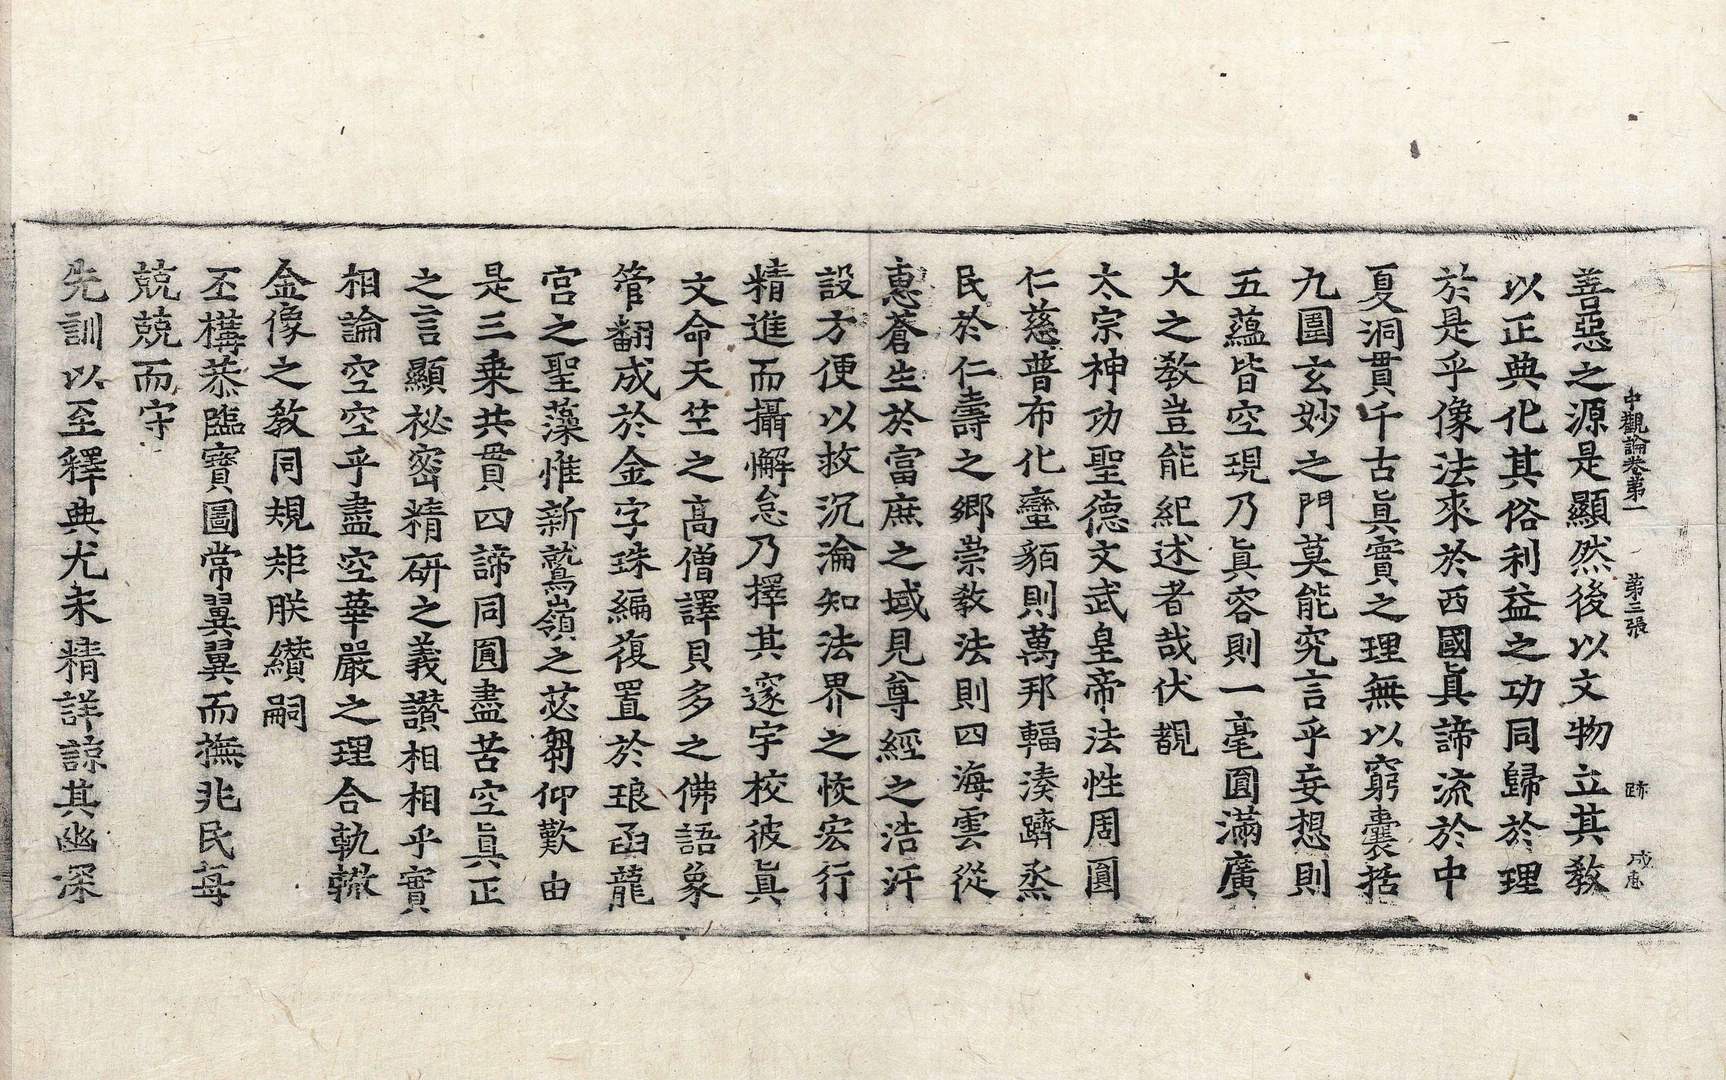 中觀論卷第一 第二張 跡 成恵
善惡之源是顯然後以文物立其教
以正典化其俗利益之功同歸於理
於是乎像法來於西國眞諦流於中
夏洞貫千古眞實之理無以窮囊括
九圍玄妙之門莫能究言乎妄想則
五蘊皆空現乃眞容則一毫圓滿廣
大之教豈能紀述者哉伏覩
太宗神功聖德文武皇帝法性周圓
仁慈普布化蠻貊則萬邦輻湊躋烝
民於仁壽之鄉崇敎法則四海雲從
惠蒼生於富庶之域見尊經之浩汗
設方便以救沉淪知法界之恢宏行
精進而攝懈怠乃擇其邃宇校彼眞
文命天竺之高僧譯貝多之佛語象
管翻成於金字珠編復置於琅函龍
宮之聖藻惟新鷲嶺之苾蒭仰歎由
是三乘共貫四諦同圓盡苦空眞正
之言顯祕密精研之義讚相相乎實
相論空空乎盡空華嚴之理合軌轍
金像之教同規矩朕纘嗣
丕構恭臨寶圖常翼翼而撫兆民每
兢兢而守
先訓以至釋典尤未精詳諒其幽深